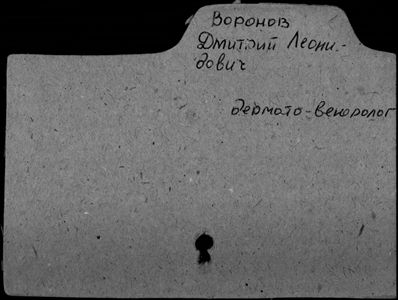 Воронов
Дмитрий Леони-
дович
дермато-венеролог